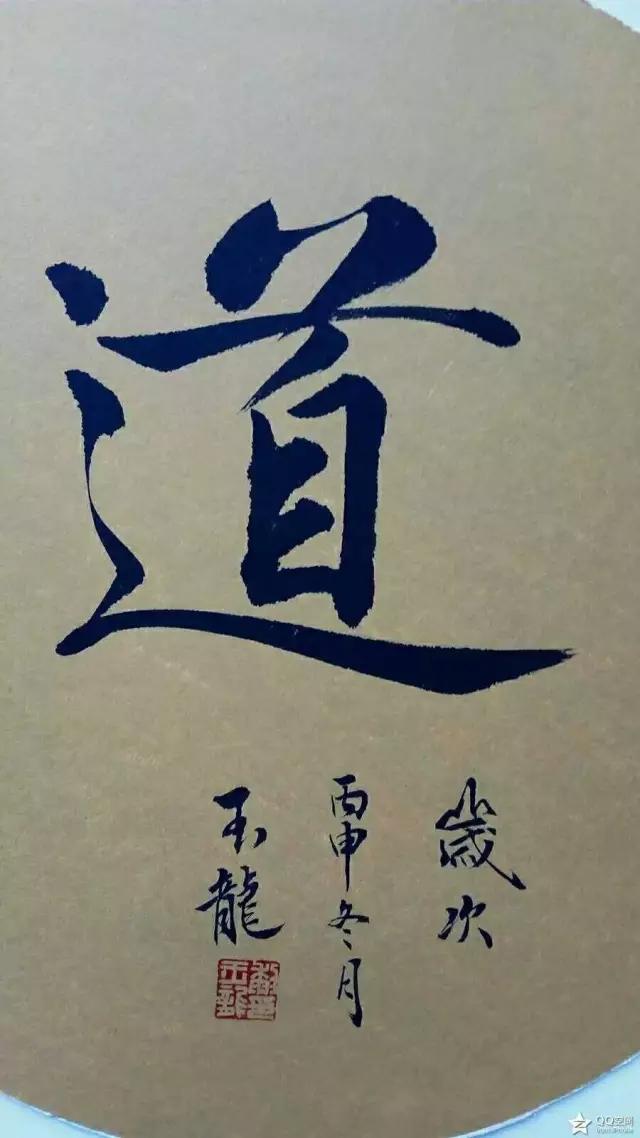 道
歲次
丙申冬月
玉龍
QQ空间